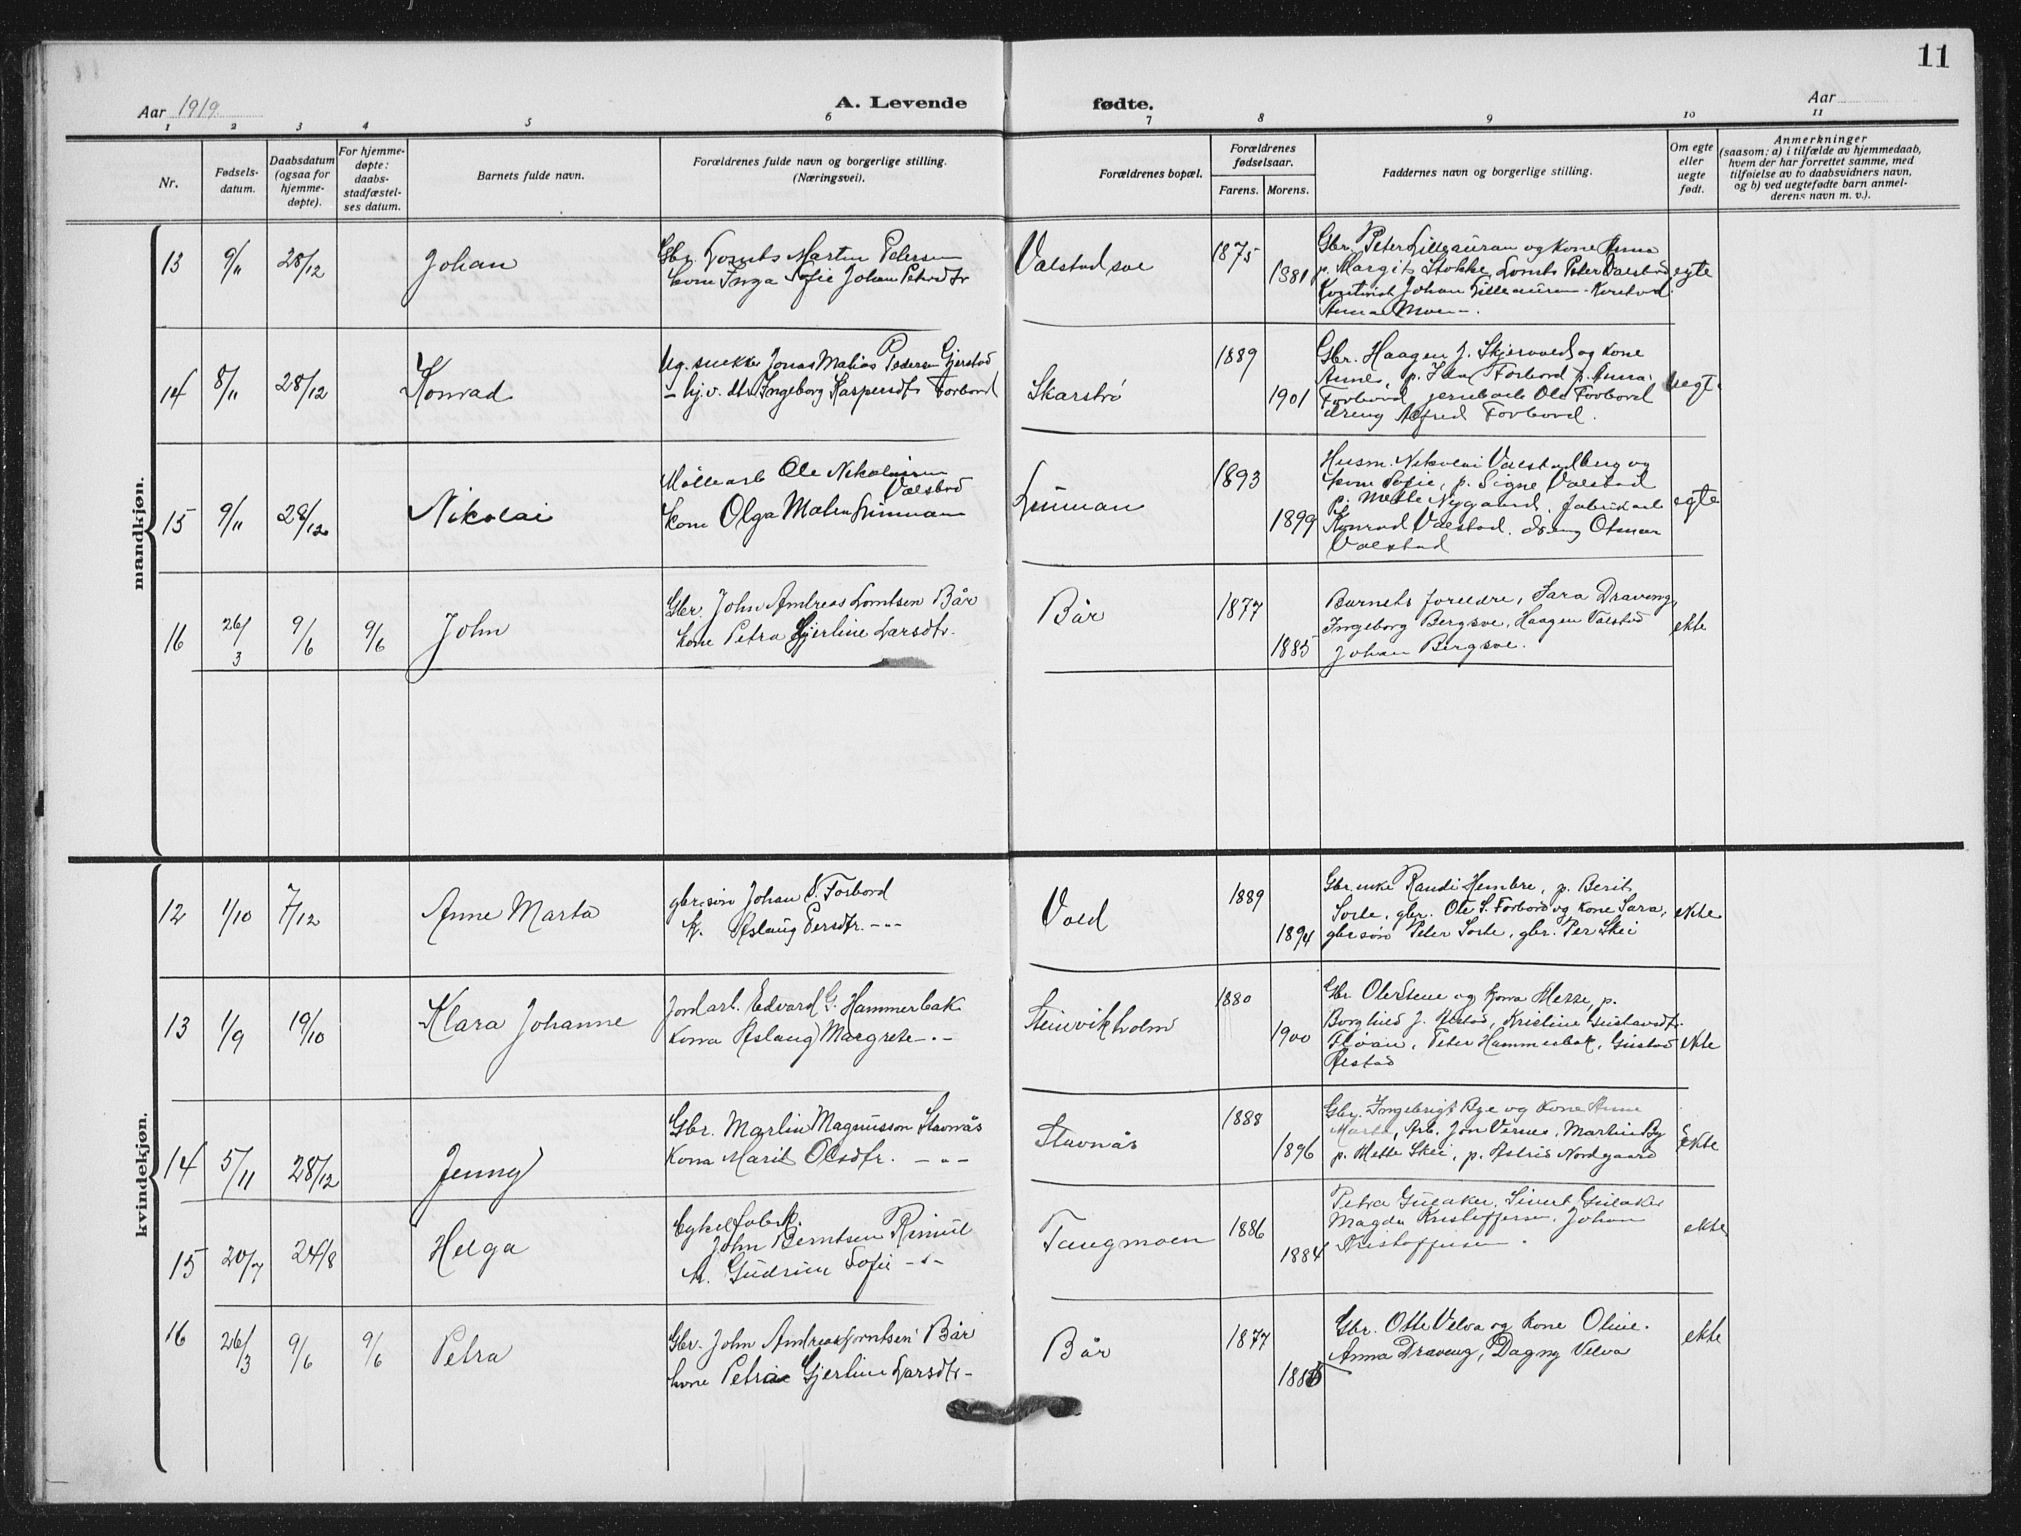 11
Aar 1919
A. Levende fødte.
Aar
1 2 3 4 5 6 7 8 9 10 11
Nr.
Fødsels-
datum.
Daabsdatum
(ogsaa for
hjemme-
døpte).
For hjemme-
døpte:
daabs-
stadfæstel-
ses datum.
Barnets fulde navn.
Forældrenes fulde navn og borgerlige stilling.
(Næringsvei).
Forældrenes bopæl.
Forældrenes
fødselsaar.
Farens. Morens.
Faddernes navn og borgerlige stilling.
Om egte
eller
uegte
født.
Anmerkninger
(saasom: a) i tilfælde av hjemmedaab,
hvem der har forrettet samme, med
tilføielse av to daabsvidners navn,
og b) ved uegtefødte barn anmel-
derens navn m. v.).
mandkjøn.
13 9/11 28/12 Johan
Gbr. Martin Petersen
kone Inga Sofie Johan Petersdtr
1875
1881
Gbr. Peter Lilleauran og kone Anna
p. Margit Stokke, Lornts Peter Valstad
Johan Lilleauran
Anna Moen.
egte
14 8/11 28/12 Konrad
Ug. snekker Jonas Matias Pedersen Gjerstad
- hj.v. dtr Ingeborg Kaspersdtr Forbord
1889
1901
Gbr. Haagen J. Skjervold og kone
Anne, p. Ida Forbord p. Anna
Forbord, jernbarb Ole Forbord
dreng Alfred Forbord.
uegt.
15 9/11 28/12 Nikolai
Møllearb Ole Nikolaisen
Valstad
kone Olga
1893
1899
Husm. Nikolai Valstadberg og
kone Sofie, p. Signe Valstad
p. Mette Nygaard,
Konrad Valstad, dreng Otmar
Valstad
egte
16 26/3 9/6 9/6 John
Gbr John Andreas Lorntsen Bår
kone Petra Gjerline Larsdtr.
Bår
1877
1885
Barnets foreldre, Sara Draveng,
Ingeborg Bergsve, Haagen Valstad
Johan Bergsve.
ekte
kvindekjøn.
12 1/10 7/12 Anne Marta
gbr.søn Johan Forbord
k. Aslaug Persdtr. - " -
Vold
1889
1894
Gbr.enke Randi Hembre, p. Berit
Sorte, gbr. Ole S. Forbord og kone Sara,
gbr.søn Peter Sorte, gbr. Per Skei
ekte
13 1/9 19/10 Klara Johanne
Jordarb. Edvard G. Hammerbak
Kona Aslaug Margrete - " -
Steinvikholm
1880
1900
Gbr Ole Stene og kona p.
Borghild J. Alstad, Kristine Gustavsdtr.
Floan, Peter Hammerbak, Gustav
Alstad
ekte
14 5/11 28/12 Jenny
Gbr. Martin Magnusson Stavnås
Kona Marit Olsdtr. - " -
Stavnås
1888
1896
Gbr. Ingebrigt Bye og Kone Anne
Marta, Arb. Jon Vernes, Martin By
p. Mette Skei, p. Astrid Nordgaard
ekte
15 20/7 24/8 Helga
Cykelfabrk.
John Berntsen Rimul
k. Gudrun Sofie - " -
Tangmoen
1886
1884
Petra Gulaker, Sivert Gulaker
Magda Kristoffersen, Johan
Kristoffersen.
ekte
16 26/3 9/6 9/6 Petra
Gbr. John Andreas Lorntsen Bår
kone Petra Gjerline Larsdtr-
Bår
1877
1885
Gbr. Otte Velva og kone Oline.
Anna Draveng, Dagny Velva
ekte